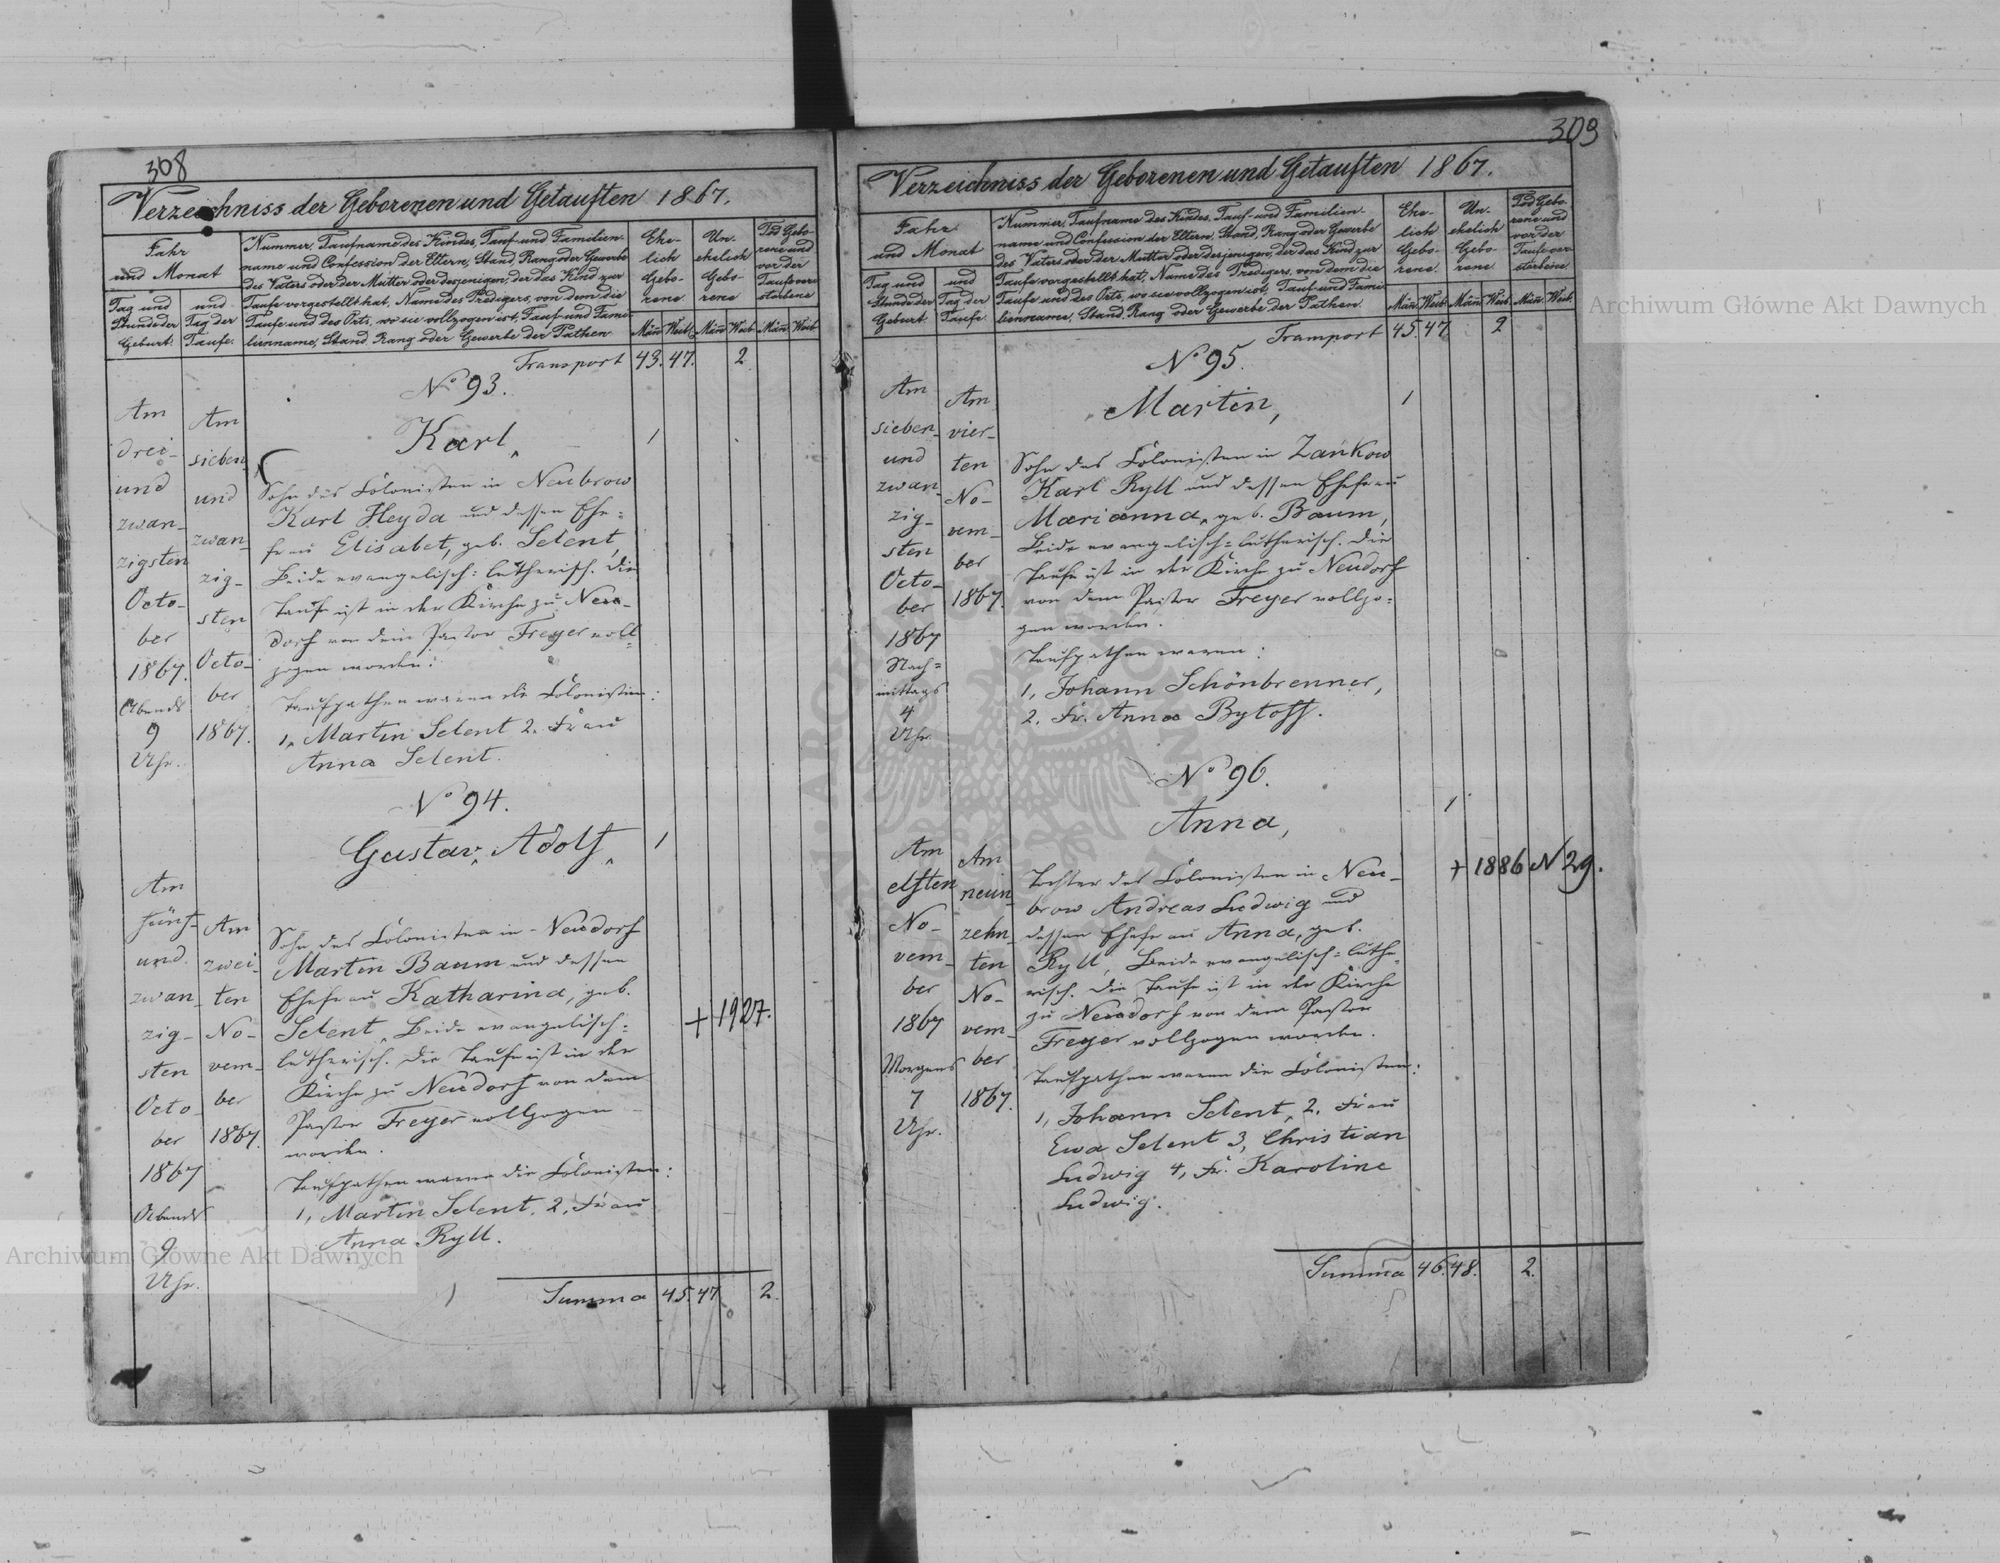 308
Verzeichniss der Geborenen und Getauften 1867.
Jahr
und Monat
Tag und
Stunde der
Geburt.
und
Tag der
Taufe.
Nummer, Taufname des Kindes, Tauf- und Familien-
name und Confession der Eltern, Stand, Rang oder Gewerbe
des Vaters oder der Mutter oder desjenigen, der das Kind zur
Taufe vorgestellt hat, Name des Predigers, von dem die
Taufe und des Orts, wo sie vollzogen ist, Tauf- und Fami-
lienname, Stand, Rang oder Gewerbe der Pathen.
Ehe-
lich
Gebo-
rene.
Un-
ehelich
Gebo-
rene
Tod Gebo-
rene und
vor der
Taufe ver-
storbene
Män. Weib. Män. Weib. Män. Weib.
Transport 43. 47. 2
No 93.
Karl, 1
Am
drei-
und
zwan-
zigsten
Octo-
ber
1867.
Abends
9
Uhr.
Am
sieben
und
zwan-
zig-
sten
Octo-
ber
1867.
Sohn des Colonisten in Neubrow
Karl Heyda und dessen Ehe-
frau Elisabet, geb. Selent,
Beide evangelisch-lutherisch. Die
Taufe ist in der Kirche zu Neu-
dorf von dem Pastor Freyer voll-
zogen worden.
Taufpathen waren die Colonisten:
1, Martin Selent 2. Frau
Anna Selent.
No 94.
Gustav, Adolf, 1
Am
fünf-
und
zwan-
zig-
sten
Octo-
ber
1867
Abends
9
Uhr.
Am
zwei-
ten
No-
vem-
ber
1867.
Sohn des Colonisten in Neudorf
Martin Baum und dessen
Ehefrau Katharina, geb.
Selent, Beide evangelisch-
lutherisch. Die Taufe ist in der
Kirche zu Neudorf von dem
Pastor Freyer vollzogen
worden.
Taufpathen waren die Colonisten:
1, Martin Selent, 2, Frau
Anna Ryll.
+ 1927.
Summa 45. 47 2.
309
Verzeichniss der Geborenen und Getauften 1867.
Jahr
und Monat
Tag und
Stunde der
Geburt.
und
Tag der
Taufe.
Nummer, Taufname des Kindes, Tauf- und Familien-
name und Confession der Eltern, Stand, Rang oder Gewerbe
des Vaters oder der Mutter oder desjenigen, der das Kind zur
Taufe vorgestellt hat, Name des Predigers, von dem die
Taufe und des Orts, wo sie vollzogen ist, Tauf- und Fami-
lienname, Stand, Rang oder Gewerbe der Pathen.
Ehe-
lich
Gebo-
rene.
Un-
ehelich
Gebo-
rene
Tod Gebo-
rene und
vor der
Taufe ver-
storbene
Män. Weib. Män. Weib. Män. Weib.
Transport 45. 47 2
No 95.
Martin, 1
Am
sieben-
und
zwan-
zig-
sten
Octo-
ber
1867
Nach-
mittags
4
Uhr.
Am
vier-
ten
No-
vem-
ber
1867.
Sohn des Colonisten in Zankow
Karl Ryll und dessen Ehefrau
Marianna, geb. Baum,
Beide evangelisch-lutherisch. Die
Taufe ist in der Kirche zu Neudorf
von dem Pastor Freyer vollzo-
gen worden.
Taufpathen waren:
1, Johann Schönbrenner,
2. Fr. Anna Bytoff.
No 96.
Anna, 1
Am
elften
No-
vem-
ber
1867
Morgens
7
Uhr.
Am
neun-
zehn-
ten
No-
vem-
ber
1867.
Tochter des Colonisten in Neu-
brow Andreas Ludwig und
dessen Ehefrau Anna, geb.
Ryll, Beide evangelisch-luthe-
risch. Die Taufe ist in der Kirche
zu Neudorf von dem Pastor
Freyer vollzogen worden.
Taufpathen waren die Colonisten:
1, Johann Selent, 2. Frau
Ewa Selent 3, Christian
Ludwig 4, Fr. Karoline
Ludwig.
+ 1886 N 29.
Summa 46. 48. 2.
Archiwum Główne Akt Dawnych
Archiwum Główne Akt Dawnych